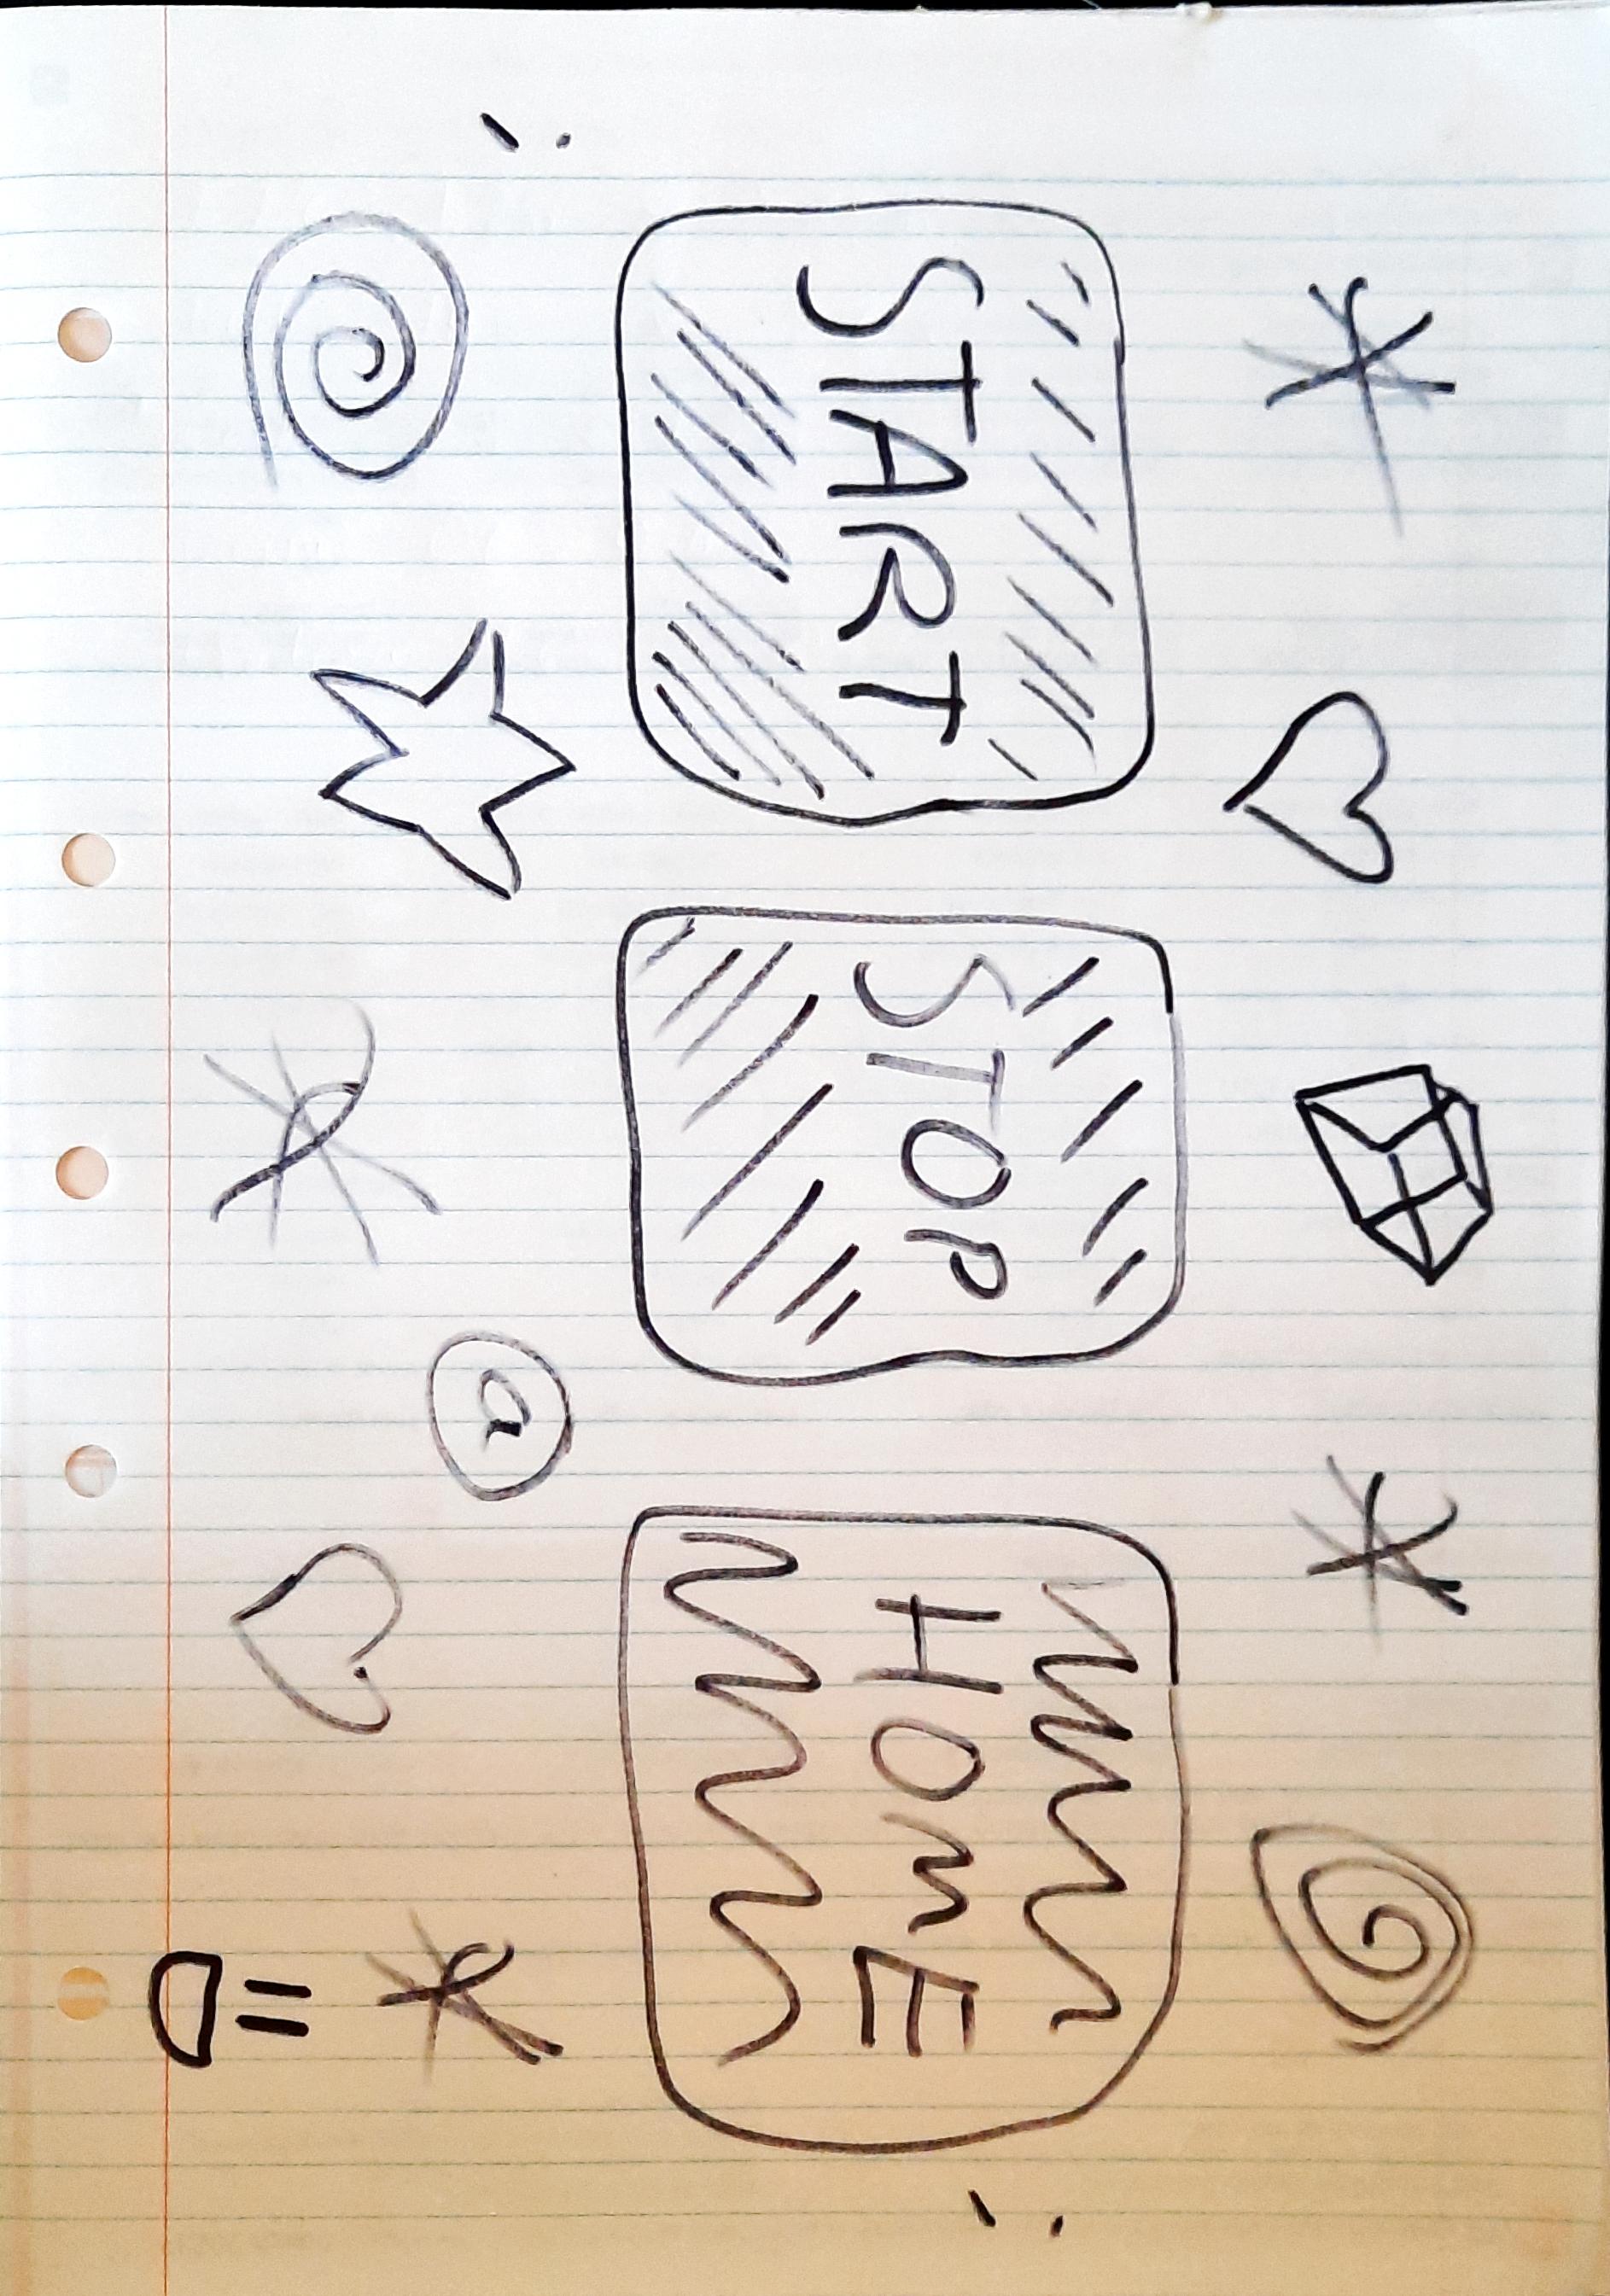 START STOP HOME
a